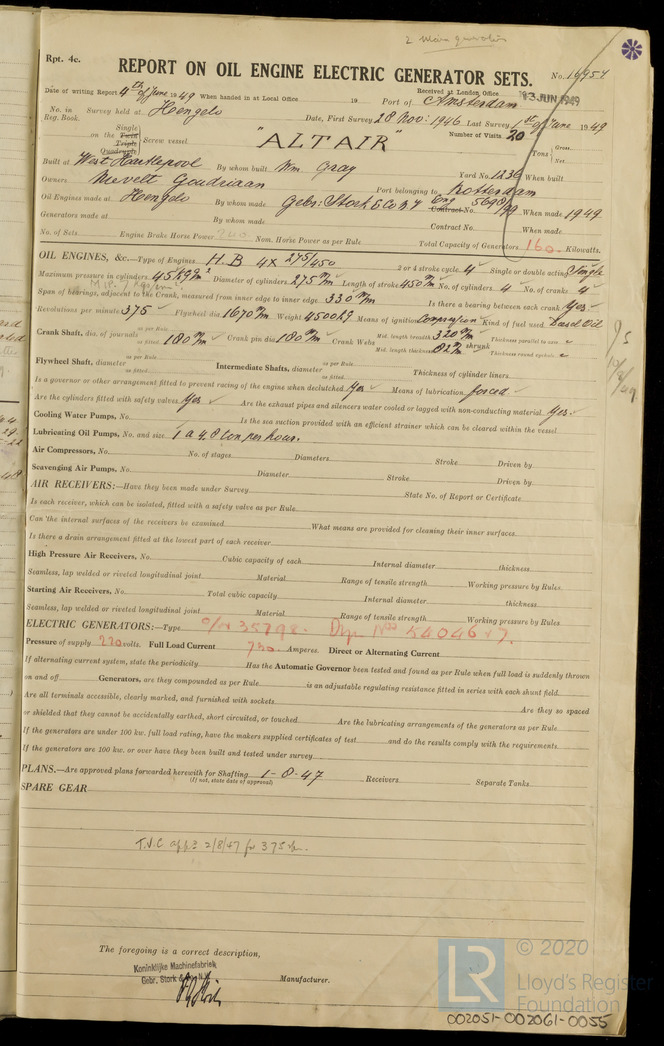 2 Main generators
Rpt. 4c.
REPORT ON OIL ENGINE ELECTRIC GENERATOR SETS.
No. 16957
Received at London Office 13 JUN 1949
Date of writing Report 4th of June 1949 When handed in at Local Office 19 Port of Amsterdam
No. in Reg. Book. Survey held at Hengelo Date, First Survey 28 Nov: 1946 Last Survey 1st of June 1949
Number of Visits 20
on the Single Twin Triple Quadruple Screw vessel "ALTAIR" Tons Gross Net
Built at West Hartlepool By whom built Wm. Gray Yard No. 1230 When built
Owners Nievelt Goudriaan Port belonging to Rotterdam
Oil Engines made at Hengelo By whom made Gebr: Stork & Co NV Eng Contract No. When made 1949
Generators made at By whom made Contract No. When made
No. of Sets Engine Brake Horse Power 240 Nom. Horse Power as per Rule Total Capacity of Generators 160 Kilowatts.
OIL ENGINES, &c.—Type of Engines H.B 4x 275/450 2 or 4 stroke cycle 4 Single or double acting Single
Maximum pressure in cylinders 45 Kg/cm² Diameter of cylinders 275 m/m Length of stroke 450 m/m No. of cylinders 4 No. of cranks 4
Span of bearings, adjacent to the Crank, measured from inner edge to inner edge 330 m/m Is there a bearing between each crank Yes
Revolutions per minute 375 Flywheel dia. 1670 m/m Weight 4500 kg Means of ignition Compression Kind of fuel used Diesel Oil
Crank Shaft, dia. of journals as per Rule as fitted 180 m/m Crank pin dia. 180 m/m Crank Webs Mid. length breadth 320 m/m Mid. length thickness 82 m/m shrunk Thickness parallel to axis Thickness round eyehole
Flywheel Shaft, diameter as per Rule as fitted Intermediate Shafts, diameter as per Rule as fitted Thickness of cylinder liners
Is a governor or other arrangement fitted to prevent racing of the engine when declutched Yes Means of lubrication forced
Are the cylinders fitted with safety valves Yes Are the exhaust pipes and silencers water cooled or lagged with non-conducting material Yes
Cooling Water Pumps, No. Is the sea suction provided with an efficient strainer which can be cleared within the vessel
Lubricating Oil Pumps, No. and size 1 a 4.8 ton per hour.
Air Compressors, No. No. of stages Diameters Stroke Driven by
Scavenging Air Pumps, No. Diameter Stroke Driven by
AIR RECEIVERS:—Have they been made under Survey State No. of Report or Certificate
Is each receiver, which can be isolated, fitted with a safety valve as per Rule
Can the internal surfaces of the receivers be examined What means are provided for cleaning their inner surfaces
Is there a drain arrangement fitted at the lowest part of each receiver
High Pressure Air Receivers, No. Cubic capacity of each Internal diameter thickness
Seamless, lap welded or riveted longitudinal joint Material Range of tensile strength Working pressure by Rules
Starting Air Receivers, No. Total cubic capacity Internal diameter thickness
Seamless, lap welded or riveted longitudinal joint Material Range of tensile strength Working pressure by Rules
ELECTRIC GENERATORS:—Type 35798.
Pressure of supply 220 volts. Full Load Current 730 Amperes. Direct or Alternating Current
If alternating current system, state the periodicity Has the Automatic Governor been tested and found as per Rule when full load is suddenly thrown
on and off Generators, are they compounded as per Rule is an adjustable regulating resistance fitted in series with each shunt field
Are all terminals accessible, clearly marked, and furnished with sockets Are they so spaced
or shielded that they cannot be accidentally earthed, short circuited, or touched Are the lubricating arrangements of the generators as per Rule
If the generators are under 100 kw. full load rating, have the makers supplied certificates of test and do the results comply with the requirements
If the generators are 100 kw. or over have they been built and tested under survey
PLANS.—Are approved plans forwarded herewith for Shafting 1-8-47 Receivers Separate Tanks
(If not, state date of approval)
SPARE GEAR
T.V.C appd 2/8/47 for 375
The foregoing is a correct description,
Koninklijke Machinefabriek
Gebr. Stork & Co N.V.
Manufacturer.
LR
© 2020
Lloyd's Register
Foundation
002051-002061-0055